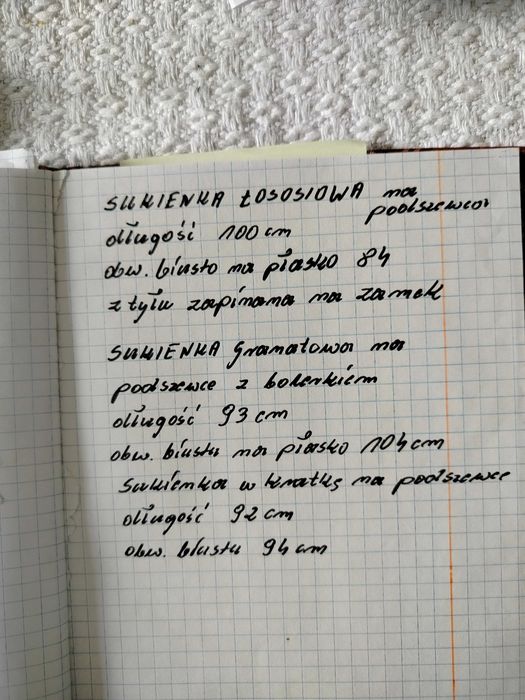 SUKIENKA ŁOSOSIOWA na
podszewce
długość 100 cm
obw. biusto na płasko 84
z tyłu zapinana na zamek
SUKIENKA Granatowa na
podszewce z bolerkiem
długość 93 cm
obw. biustu na płasko 104 cm
Sukienka w kratkę na podszewce
długość 92 cm
obw. biustu 94 cm